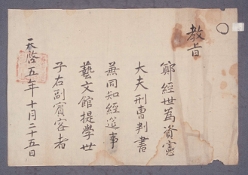 教旨
鄭經世爲資憲
大夫刑曹判書
兼同知經筵事
藝文館提學世
子右副賓客者
天啓五年十月二十五日